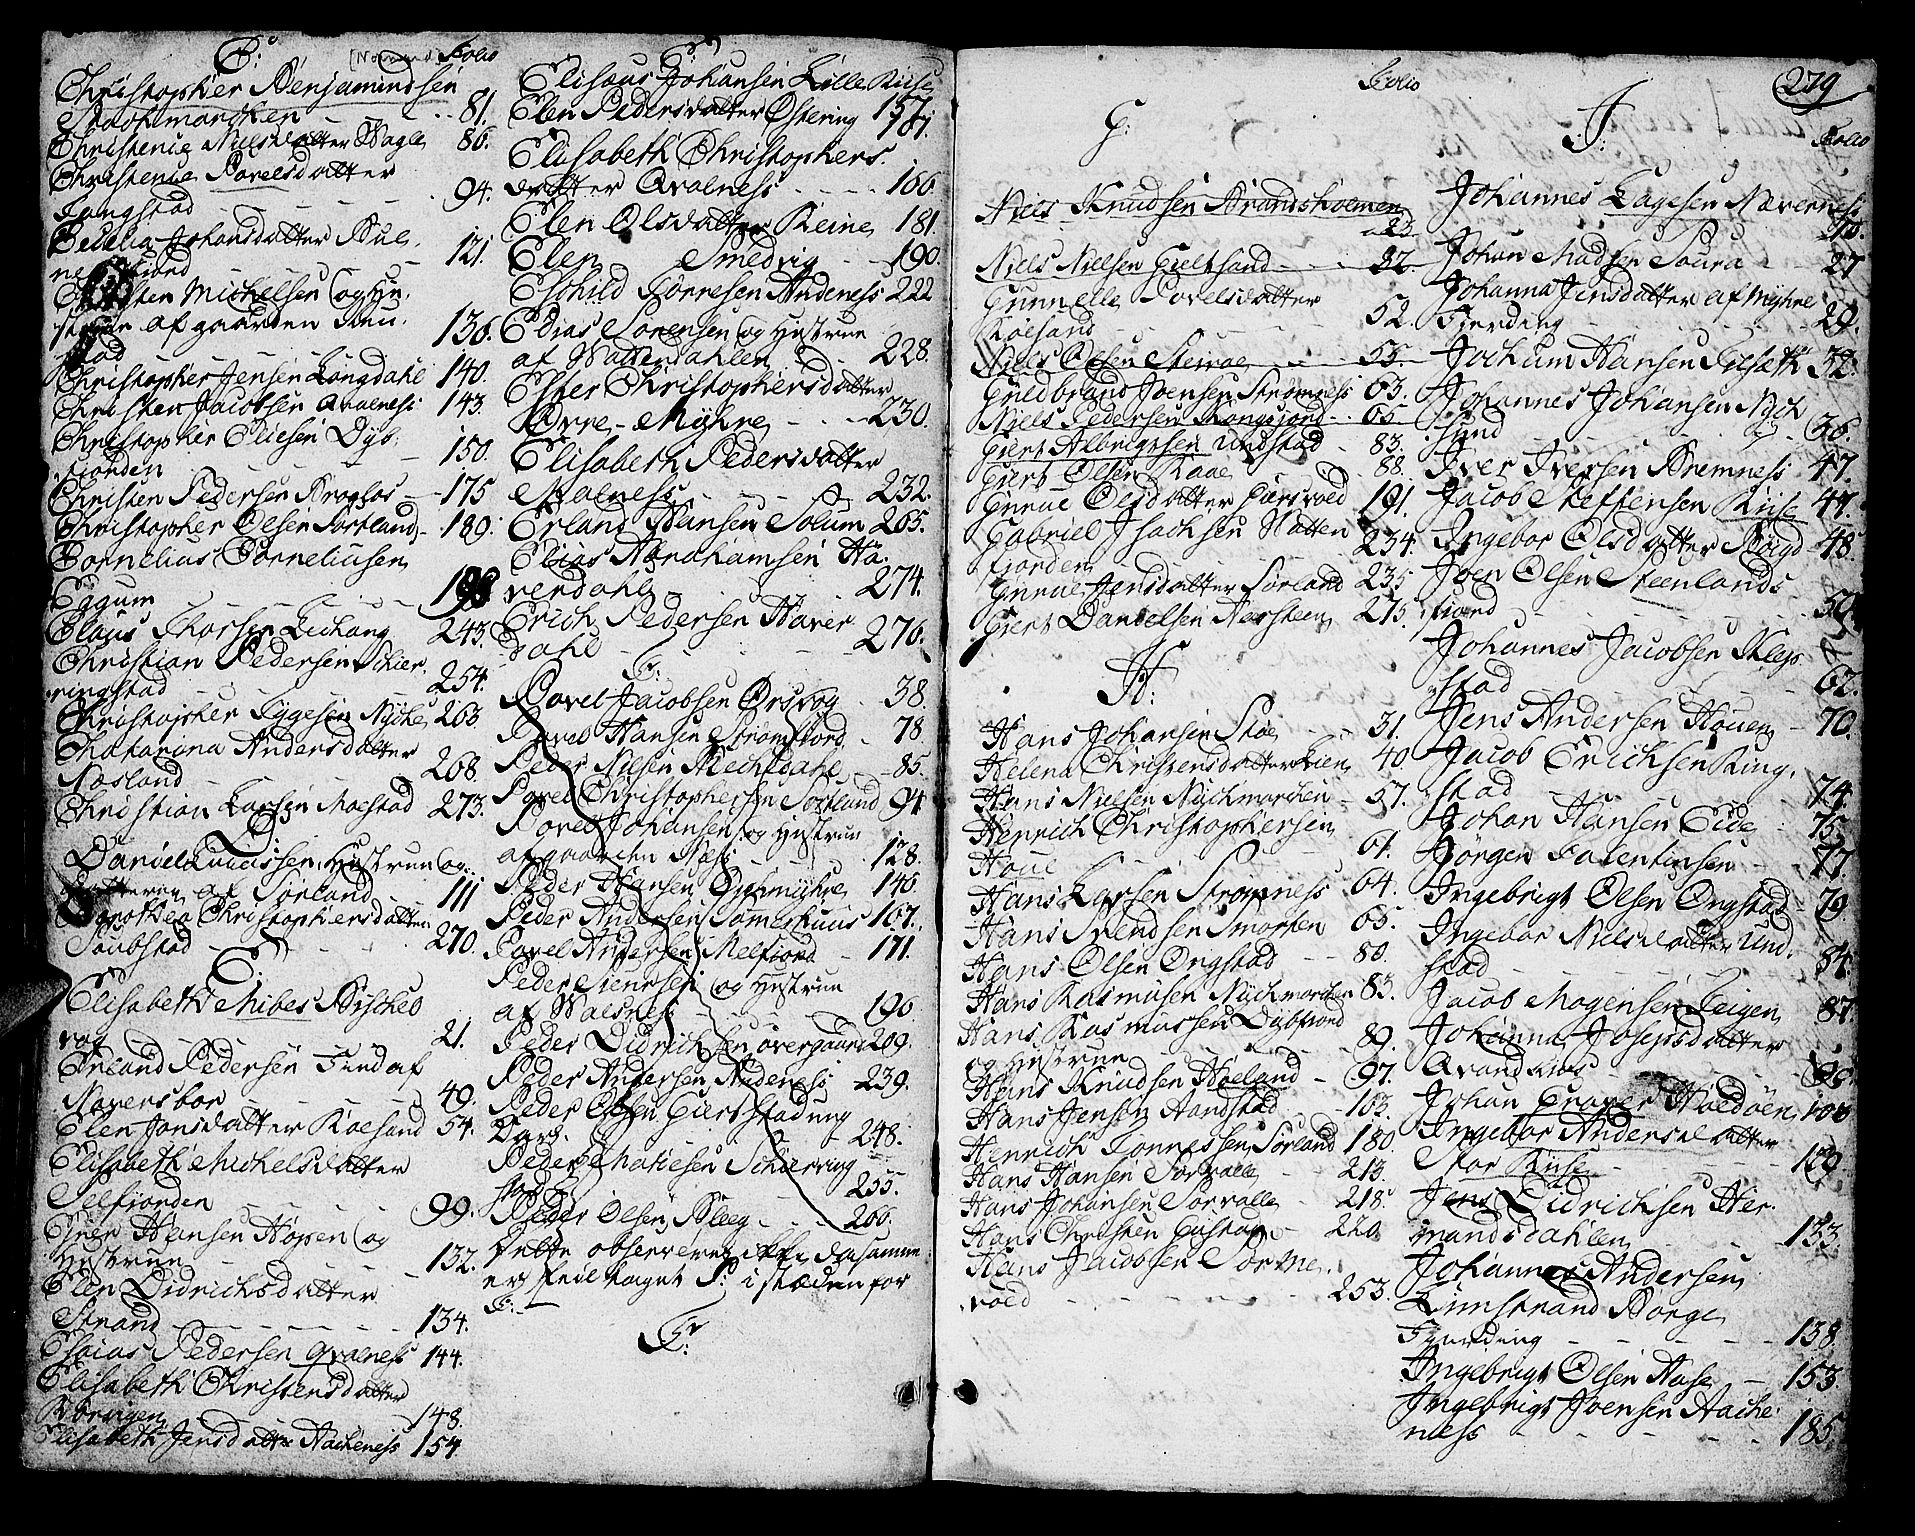 C:
[Normand] Folio
Christopher Benjamindsen
81.
Christenie Nielsdatter Wagle 86.
Christenie Povelsdatter
Jangstad - - - 94.
Cecelia Johansdatter Bul-
121.
Christen Michelsen (og Hu-
af gaarden
stad 136.
Christopher Jensen Longdahl 140.
Christen Jacobsen Qvalness 143.
Christopher Eliesen Dyb-
fjorden 150.
Christen Pedersen 175
Christopher Olsen Sortland 189.
Cornelius Corneliusen
Eggum 198
Claus Thorsen Lechang 243.
Christian Pedersen Schier-
ringstad 254.
Christopher Tygesen Nyche 263
Chatarina Andersdatter
Næsland - 268.
Christian Larsen Mæstad 273.
D
Daniel Hustrue (og
Datteren af Sørland 111
Dorothea Christophersdatter
Taubstad - - - 270.
E:
Elisabeth Mibes
vog - - - 21.
Erland Pedersen Fund af
Naversbor - - - 49.
Elen Jonsdatter Roesand 54.
Elisabeth Michelsdatter
Selfjorden - - - 99.
Ener Hansen Hopen (og
Hustrue - - - 132.
Elen Didrichsdatter
Strand - - - 134.
Esaias Pedersen Qvalness 144.
Elisabeth Christensdatter
Borvigen 148.
Elisabeth Jensdatter Hacheness 154
E:
Elisæus Johansen Lille Riise
157.
Elen Pedersdatter Østering 161.
Elisabeth Christophers-
datter Qvalness - - - 166.
Elen Olsdatter Reine 181.
Elen Smedvig - - 190.
Eschild Torresen Andeness 222
Edias Sorensen (og Hustrue
af Wattendahlen - 228.
Ester Christophersdatter
Øvre-Myhre - - - 230.
Elisabeth Pedersdatter
Malness - - - 232.
Erland Hansen Solum 265.
Elias Abrahamsen Ha-
verdahl - - - 274.
Erich Pedersen Haver-
dahl - - - 276.
F:
Povel Jacobsen Orsvog - 38.
Povel Hansen Strømfiord - 78
Peder Nilsen Mechtdahl - 85.
Povel Christophersen Sortland 94
Povel Johansen (og Hustrue
af gaarden Næss - - - 128.
Peder Hansen Opmyhre 146.
Peder Andersen Sømerhuus 167.
Povel Andersen Melfiord - 171.
Peder (og Hustrue
af Walsness - - - 190
Peder Didrichsen overgaard 209.
Peder Andersen Andeness 239.
Peder Olsen Giers stad ung
Dorg. - - - 248.
Peder Matiesen Schierring
stad - - - 255.
Peder Olsen Kleeg - - - 266.
Dette observeres ikke da samme
er feil taget P: i stæden for
F:
F:
279
Folio
G:
Niels Knudsen Brandsholmen
23
Niels Nielsen Gieltsand - - 32.
Gunnelle Povelsdatter
Roesand - - - 52.
Niels Olsen Steiroe - - - 55.
Guldbrand Joensen Strømness 63.
Niels Pedersen Kongsjord - - 66
Giert Albrigtsen Undstad - 83.
Giert Olsen Raae - - 88.
Gunnel Olsdatter 191.
Gabriel Isachsen Watten-
fjorden 234.
Gunnel Jensdatter Sorland 235
Giert Danielsen Aarsteen 275.
H:
Hans Johansen Stoe - - - 31.
Helena Christensdatter Lien 40
Hans Nielsen Nychmarchen - 57.
Henrich Christophersen
Houe - - - 61.
Hans Larsen Strømness 64.
Hans Svendsen Smorten 65.
Hans Olsen Ongstad - - 80.
Hans Rasmusen Nychmarchen 83.
Hans Rasmussen Dybfiord
og Hustrue - - 89.
Hans Knudsen Høeland - 97.
Hans Jensen Aandstad - 103.
Henrich Tonnessen Sorland 180.
Hans Hansen Sorvalle - 213.
Hans Johansen Sorvalle - 218.
Hans Christen Gustav - 220.
Hans Jacobsen Sor me-
voed - - - 253.
I:
Folio
Johannes Lagesen Næverness
18.
Johan Madsen Soura - 27
Johanna Jensdatter af Myhre
Fierding - - - 29.
Jochum Hansen 32.
Johannes Johansen Nych
sund - - - 36.
Iver Iversen Bremness 47.
Jacob Steffensen Riise 47.
Ingebor Olsdatter 48
Joen Olsen Steenlands-
fiord - - - 50.
Johannes Jacobsen Klep-
stad - - - 62.
Jens Andersen Houen - 70.
Jacob Erichsen Ring-
stad - - - 74.
Johan Hansen Eide - 75.
Jørgen Falentinsen - 77
Ingebrigt Olsen Ongstad - 79
Ingebor Nielsdatter Und-
stad - - - 84.
Jacob Mogensen Teigen 87
Johanna Josepsdatter
- - - 96.
Johan Graver Hoedøen 100
Ingebor Andersdatter
Stor Riise - - - 130.
Jens Didrichsen Her-
mandsdahlen - - - 133.
Johannes Andersen
Limstrand Borge
Fierding - - - 138.
Ingebrigt Olsen Aase - 153.
Ingebrigt Joensen Hache-
ness - - - 185.